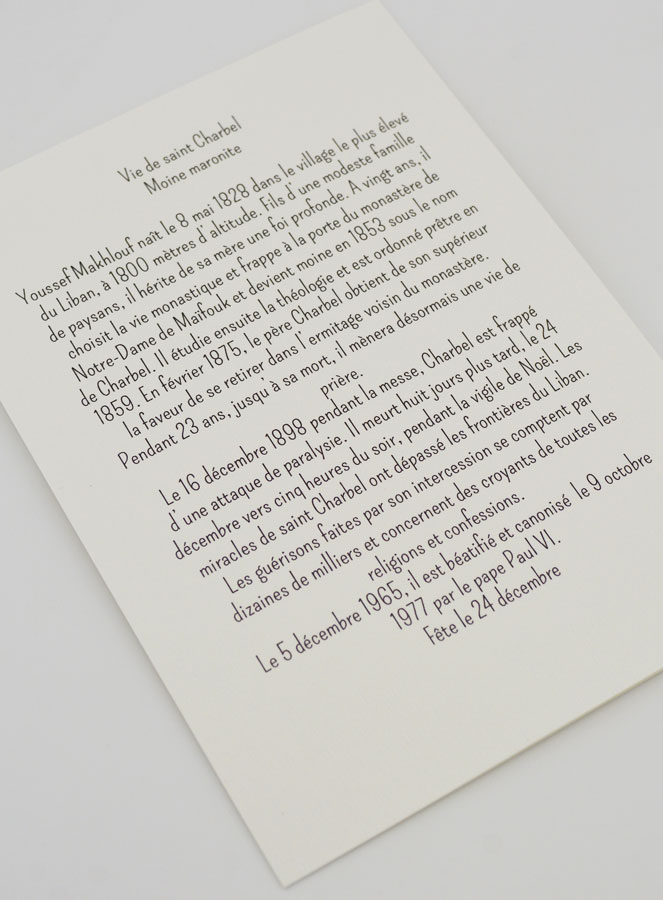 Vie de saint Charbel
Moine maronite
Youssef Makhlouf naît le 8 mai 1828 dans le village le plus élevé
du Liban, à 1800 mètres d'altitude. Fils d'une modeste famille
de paysans, il hérite de sa mère une foi profonde. A vingt ans, il
choisit la vie monastique et frappe à la porte du monastère de
Notre-Dame de Maïfouk et devient moine en 1853 sous le nom
de Charbel. Il étudie ensuite la théologie et est ordonné prêtre en
1859. En février 1875, le père Charbel obtient de son supérieur
la faveur de se retirer dans l'ermitage voisin du monastère.
Pendant 23 ans, jusqu'à sa mort, il mènera désormais une vie de
prière.
Le 16 décembre 1898 pendant la messe, Charbel est frappé
d'une attaque de paralysie. Il meurt huit jours plus tard, le 24
décembre vers cinq heures du soir, pendant la vigile de Noël. Les
miracles de saint Charbel ont dépassé les frontières du Liban.
Les guérisons faites par son intercession se comptent par
dizaines de milliers et concernent des croyants de toutes les
religions et confessions.
Le 5 décembre 1965, il est béatifié et canonisé le 9 octobre
1977 par le pape Paul VI.
Fête le 24 décembre